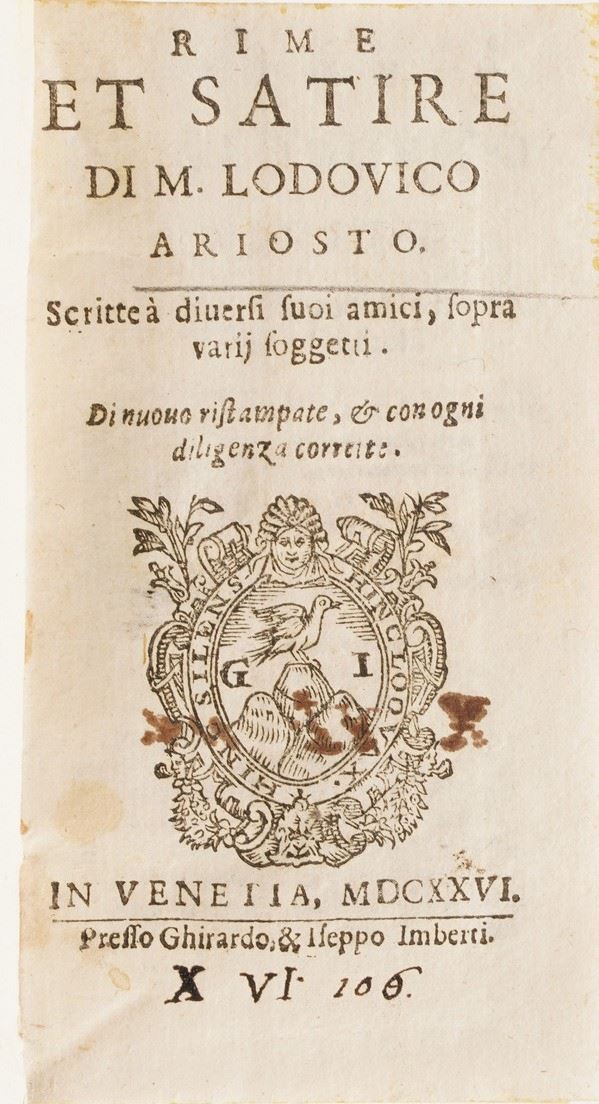 RIME
ET SATIRE
DI M. LODOVICO
ARIOSTO.
Scritte à diuerſi ſuoi amici, ſopra
varij ſoggetti.
Di nuouo riſtampate, & con ogni
diligenza corrette.
HINC SILENS HINC LOQVAX.
G I
IN VENETIA, MDCXXVI.
Preſſo Ghirardo, & Iſeppo Imberti.
X VI· 106.